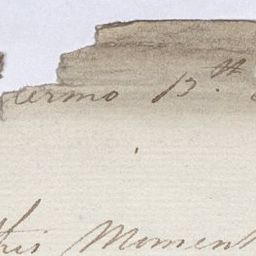 ermo 13.th
this Moment